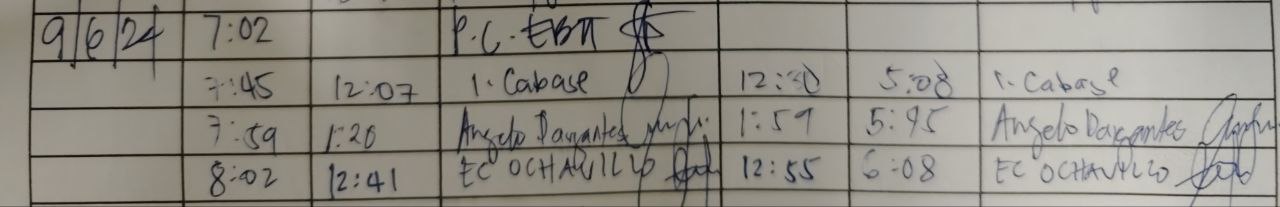 9/6/24 7:02 P.C. EBT
7:45 12:07 1. Cabase 12:30 5:08 1. Cabase
7:59 1:20 Angelo Dayantes 1:59 5:45 Angelo Dayantes
8:02 12:41 EC OCHAVILLO 12:55 6:08 EC OCHAVILLO